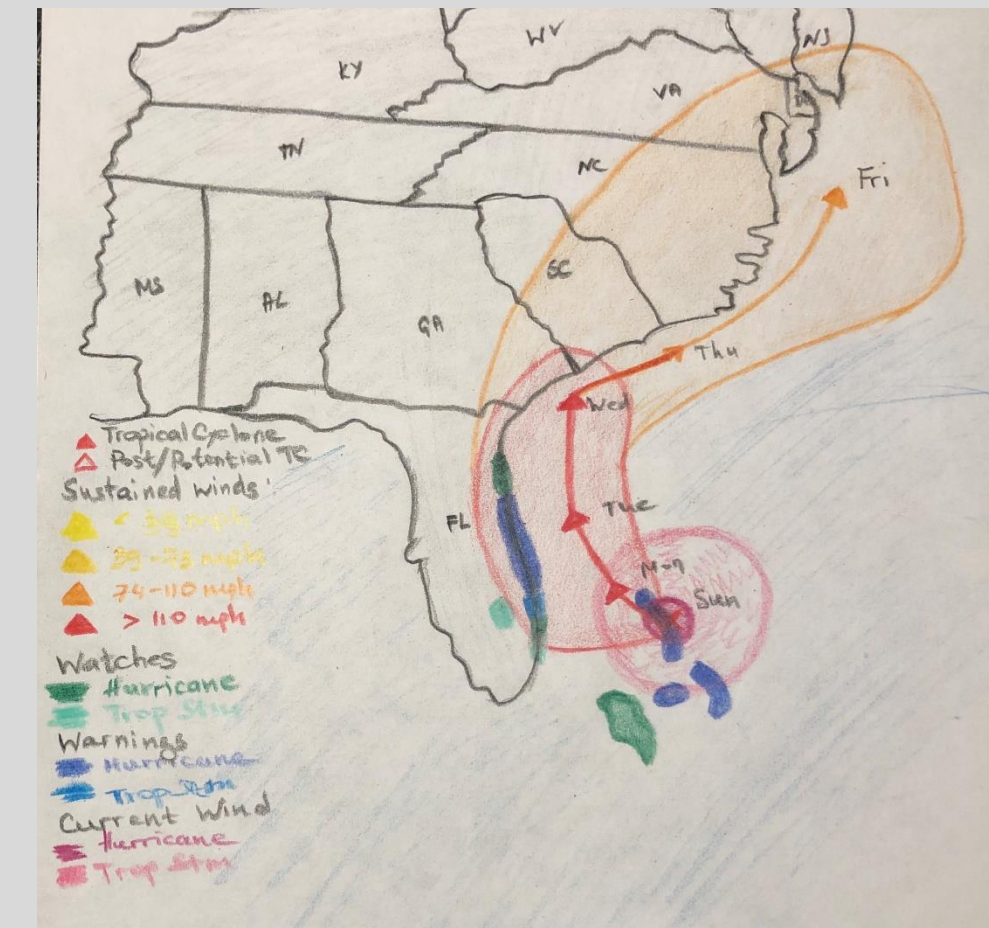 WV
NS
KY
VA
TN
NC
Fri
MS
AL
GA
SC
Thu
Wed
Tropical Cyclone
Post/Potential TC
Sustained winds
FL
Tue
< 39 mph
39-73 mph
Mon
74-110 mph
Sun
> 110 mph
Watches
Hurricane
Trop Stm
Warnings
Hurricane
Trop Stm
Current Wind
Hurricane
Trop Stm